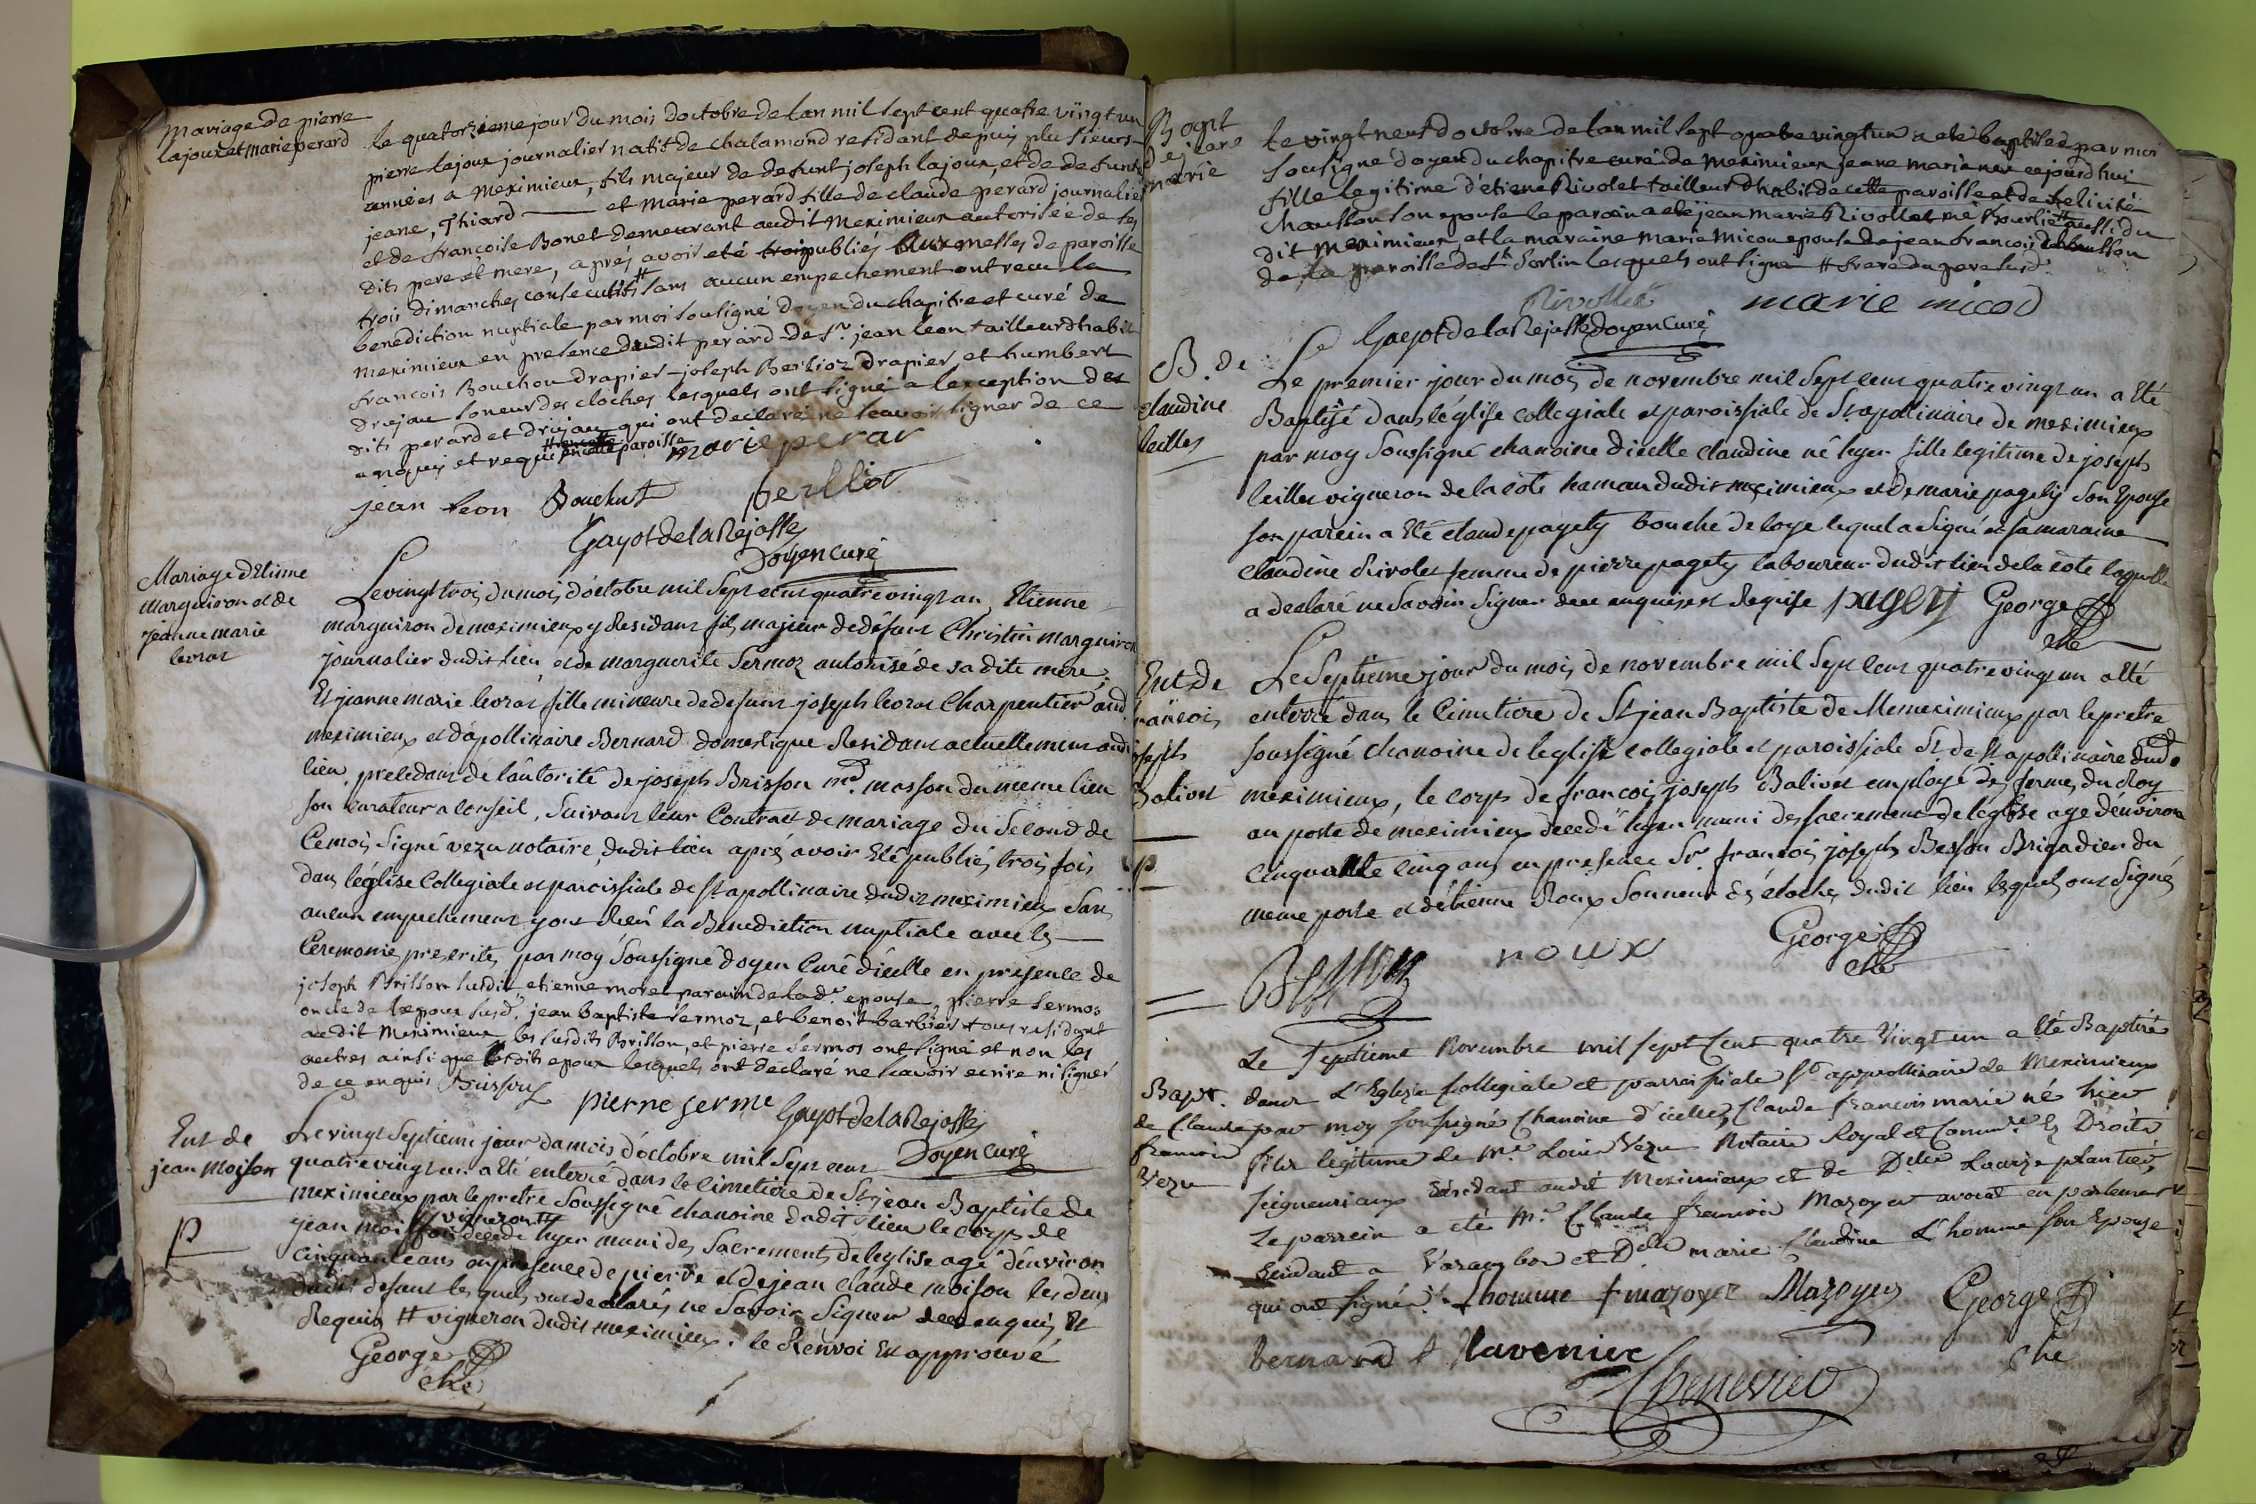 Mariage de pierre
lajoux et marie perard
Le quatorzieme jour du mois doctobre de lan mil sept cent quatre vingt un
pierre lajoux journalier natif de chalamond residant depuis plusieurs
années a meximieux, fils majeur de defunt joseph lajoux, et de defunte
jeane, Thiard et marie perard fille de claude perard journalier
et de francoise Bonet demeurant audit meximieux autorisée de ses
dits pere et mere, aprés avoir eté publiés aux messes de paroisse
trois dimanches consecutifs # sans aucun empechement ont recu la
benediction nuptiale par moi sousigné doyen du chapitre et curé de
meximieux en presence dudit perard de Sr. jean leon tailleur dhabit
francois Bouchou drapier joseph Berlioz drapier et humbert
drujau soneur des cloches lesquels ont signé a lexception des
dits perard et drujau qui ont declaré ne scavoir signer de ce
enquis et requis # paroisse marie perar
jean leon Bouchut berlioz
Gayot de la Rejasse
Doyen curé
Mariage d'Etienne
Marguiron et de
jeanne marie
levrat
Le vingt trois du mois d'octobre mil sept cent quatre vingt un, Etienne
marguiron de meximieux y Residant fils majeur de défunt Christin marguiron
journalier dudit lieu et de marguerite Sermoz autorisé de sa dite mere,
Et jeanne marie levrat fille mineure de defunt joseph levrat Charpentier aud.
meximieux et d'apollinaire Bernard domestique Residant actuellement audit
lieu, procedant de l'autorité de joseph Brisson md. masson du meme lieu
son curateur a conseil, suivant leur Contract de mariage du Second de
Ce mois Signé vezu notaire, dudit lieu aprés avoir Eté publiés trois fois
dans l'église Collegiale et paroissiale de St apollinaire dudit meximieux Sans
aucun empechement y ont Recu la Benediction nuptiale avec les
Ceremonies prescrites, par moy Soussigné doyen Curé d'icelle en presence de
joseph Brisson susdit etienne morel parain de lad.e epouse, pierre sermos
oncle de lepoux susd. jean baptiste sermoz, et benoit barbier tous residant
audit meximieux, les susdits Brisson, et pierre sermos ont signé et non les
autres ainsi que lesdits epoux lesquels ont declaré ne scavoir ecrire ni signer
de ce enquis Buisson pierre serme Gayot de la Rejasse
Doyen curé
Ent de
jean moisson
P
Le vingt Septieme jour du mois d'octobre mil Sept cent
quatre vingt un a Eté enterré dans le cimetiere de St jean Baptiste de
meximieux par le pretre Soussigné chanoine dudit lieu le corps de
jean moisson vigneron # decedé hyer muni des Sacrements de leglise agé d'environ
cinquante ans en presence de pierre et de jean claude moison les deux
dudit defunt lesquels ont declarés ne Savoir Signer de ce enquis Et
Requis # vigneron dudit meximieux. le Renvoi Est approuvé
George
che
Bapt
de jeane
marie
Le vingt neuf doctobre de lan mil sept quatre vingt un a eté baptisée par moi
sousigné doyen du chapitre curé de meximieux jeane marie née cejourdhui
fille legitime d'etiene Rivolet tailleur dhabit de cette paroisse et de felicité
chausson son epouse le parain a eté jean marie Rivollet # aussi du
dit meximieux et la maraine marie micou epouse de jean francois chausson
de la paroisse de St Sorlin lesquels ont signé # frere du pere susd.
Rivollet marie micod
Gayot de la Rejasse doyen curé
B. de
claudine
leillex
Le premier jour du mois de novembre mil Sept cent quatre vingt un a Eté
Baptisé dans l'église collegiale et paroissiale de St apollinaire de meximieux
par moy Soussigné chanoine d'icelle claudine né hyer fille legitime de joseph
leillex vigneron de la côte hamau dudit meximieux et de marie pagety Son Epouse
son parein a Eté claude pagety bouché de loye lequel a signé et sa maraine
claudine Rivolet femme de pierre pagety laboureur dudit lieu de la cote laquelle
a declaré ne Savoir Signer de ce enquise et Requise pagety George
che
Ent de
francois
joseph
Balivet
P
Le Septieme jour du mois de novembre mil Sept Cent quatre vingt un a Eté
enterré dans le Cimetiere de St jean Baptiste de Memeximieux par le pretre
soussigné chanoine de leglise collegiale et paroissiale St de St apollinaire dudit
meximieux, le corps de francois joseph Balivet employé des fermes du Roy
au poste de meximieux decedé hyer muni des sacrements de leglise agé denviron
cinquante cinq ans en presence Sr. francois joseph Besson Brigadier du
meme poste et d'étienne Roux Sonneur des cloches dudit lieu lesquels ont Signés
Besson roux George
che
Bapt.
de Claude
francois
Vezu
Le septieme Novembre mil sept Cent quatre Vingt un a Eté Baptisé
dans L'Eglise Collegiale et parroissiale St appollinaire de Meximieux
par moy soussigné Chanoine d'icelle, Claude francois marie né hier
fils legitime de Me Louis Vezu Notaire Royal et Commre Es Droits
Seigneuriaux Résidant audit Meximieux et de Dlle Louise plantier,
Le parrein a eté Mr Claude francois Mazoyer avocat en parlement
Residant a Varambon et Dlle marie Claudine L'homme son Epouse
qui ont signés. Lhomme f mazoyer Mazoyer George
che
bernard f Ravenier
Chenevier